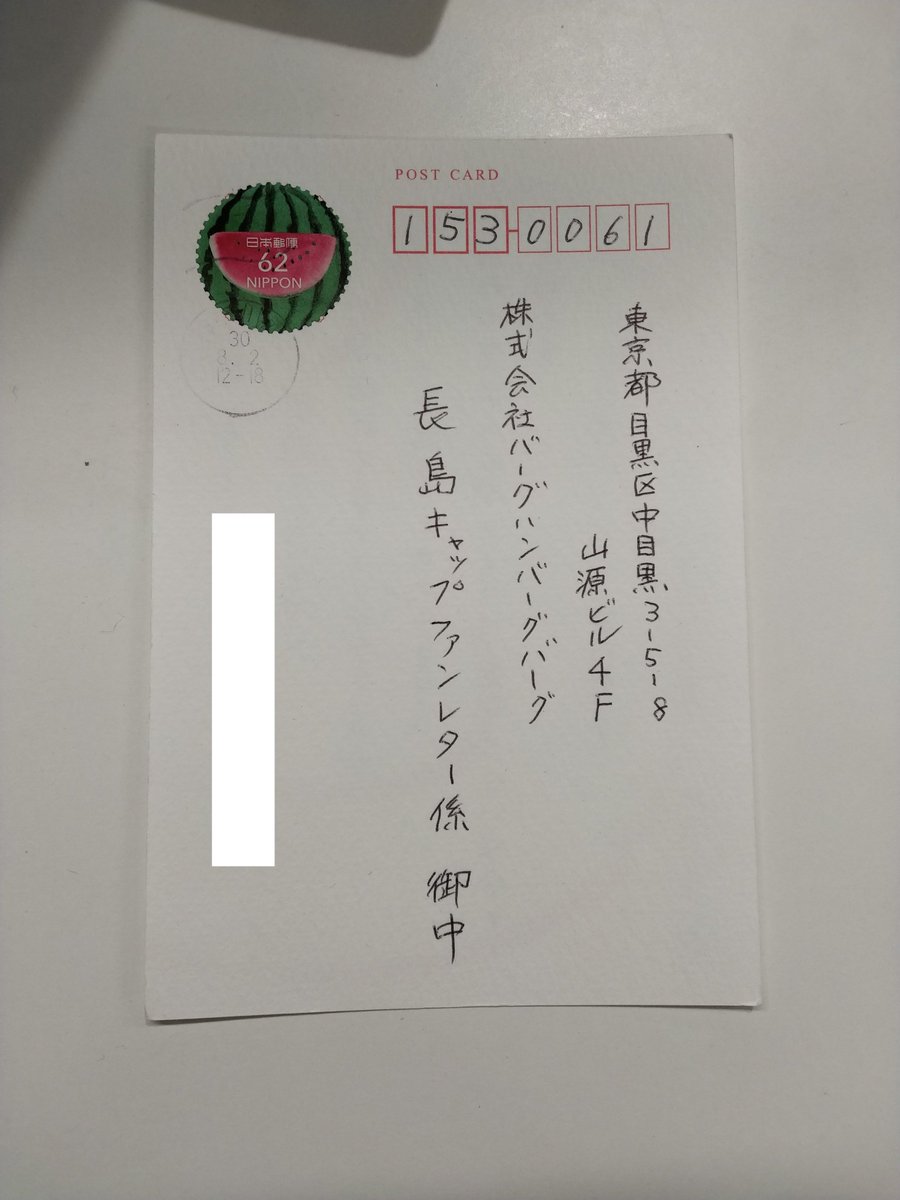 POST CARD
153-0061
日本郵便
62
NIPPON
30
8.2
12-18
東京都目黒区中目黒3-5-8
山源ビル4F
株式会社バーグハンバーグバーグ
長島キャップファンレター係 御中